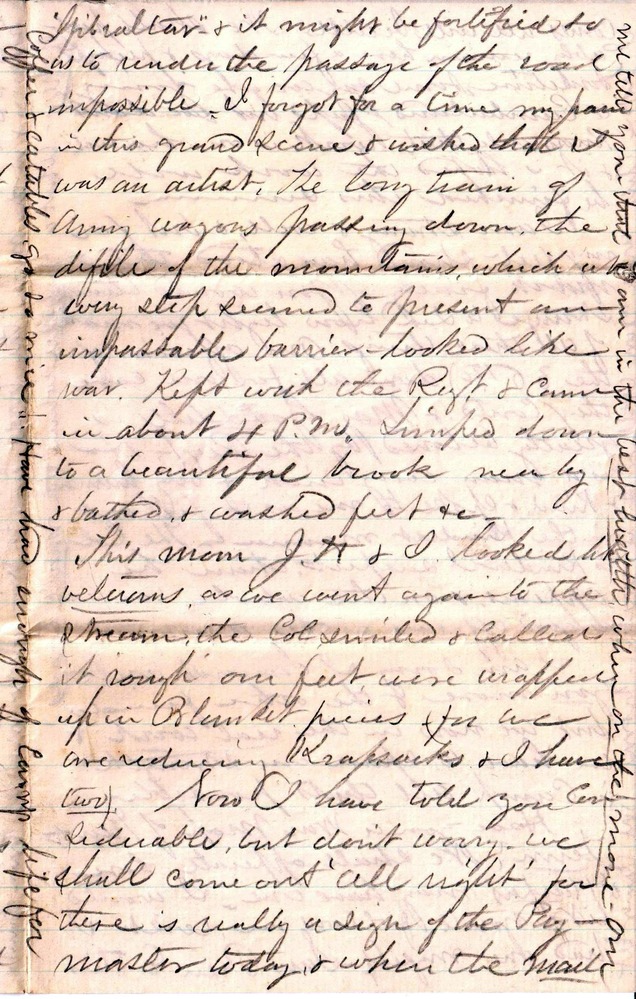 Gibraltar" & it might be fortified so
as to render the passage of the road
impossible. I forgot for a time my pain
in this grand scene & wished that I
was an artist. The long train of
Army wagons passing down, the
difile of the mountains, which at
every step seemed to present an
impassable barrier looked like
war. Kept with the Regt & came
in about 4 P.M. Limped down
to a beautiful brook near by
& bathed, & washed feet &c
This morn J. H & I. looked like
veterans, as we went again to the
stream, the Col smiled & called
it 'rough' our feet were wrapped
up in Blanket pieces (for we
are reducing Knapsacks & I have
two). Now I have told you Con
siderable, but don't worry. we
shall come out 'all right' for
there is really a sign of the Pay-
master today, & when the mail
me tell you that I am in the best health when on the move - Our
Coffee & eatables go so nice! Have had enough of Camp life for